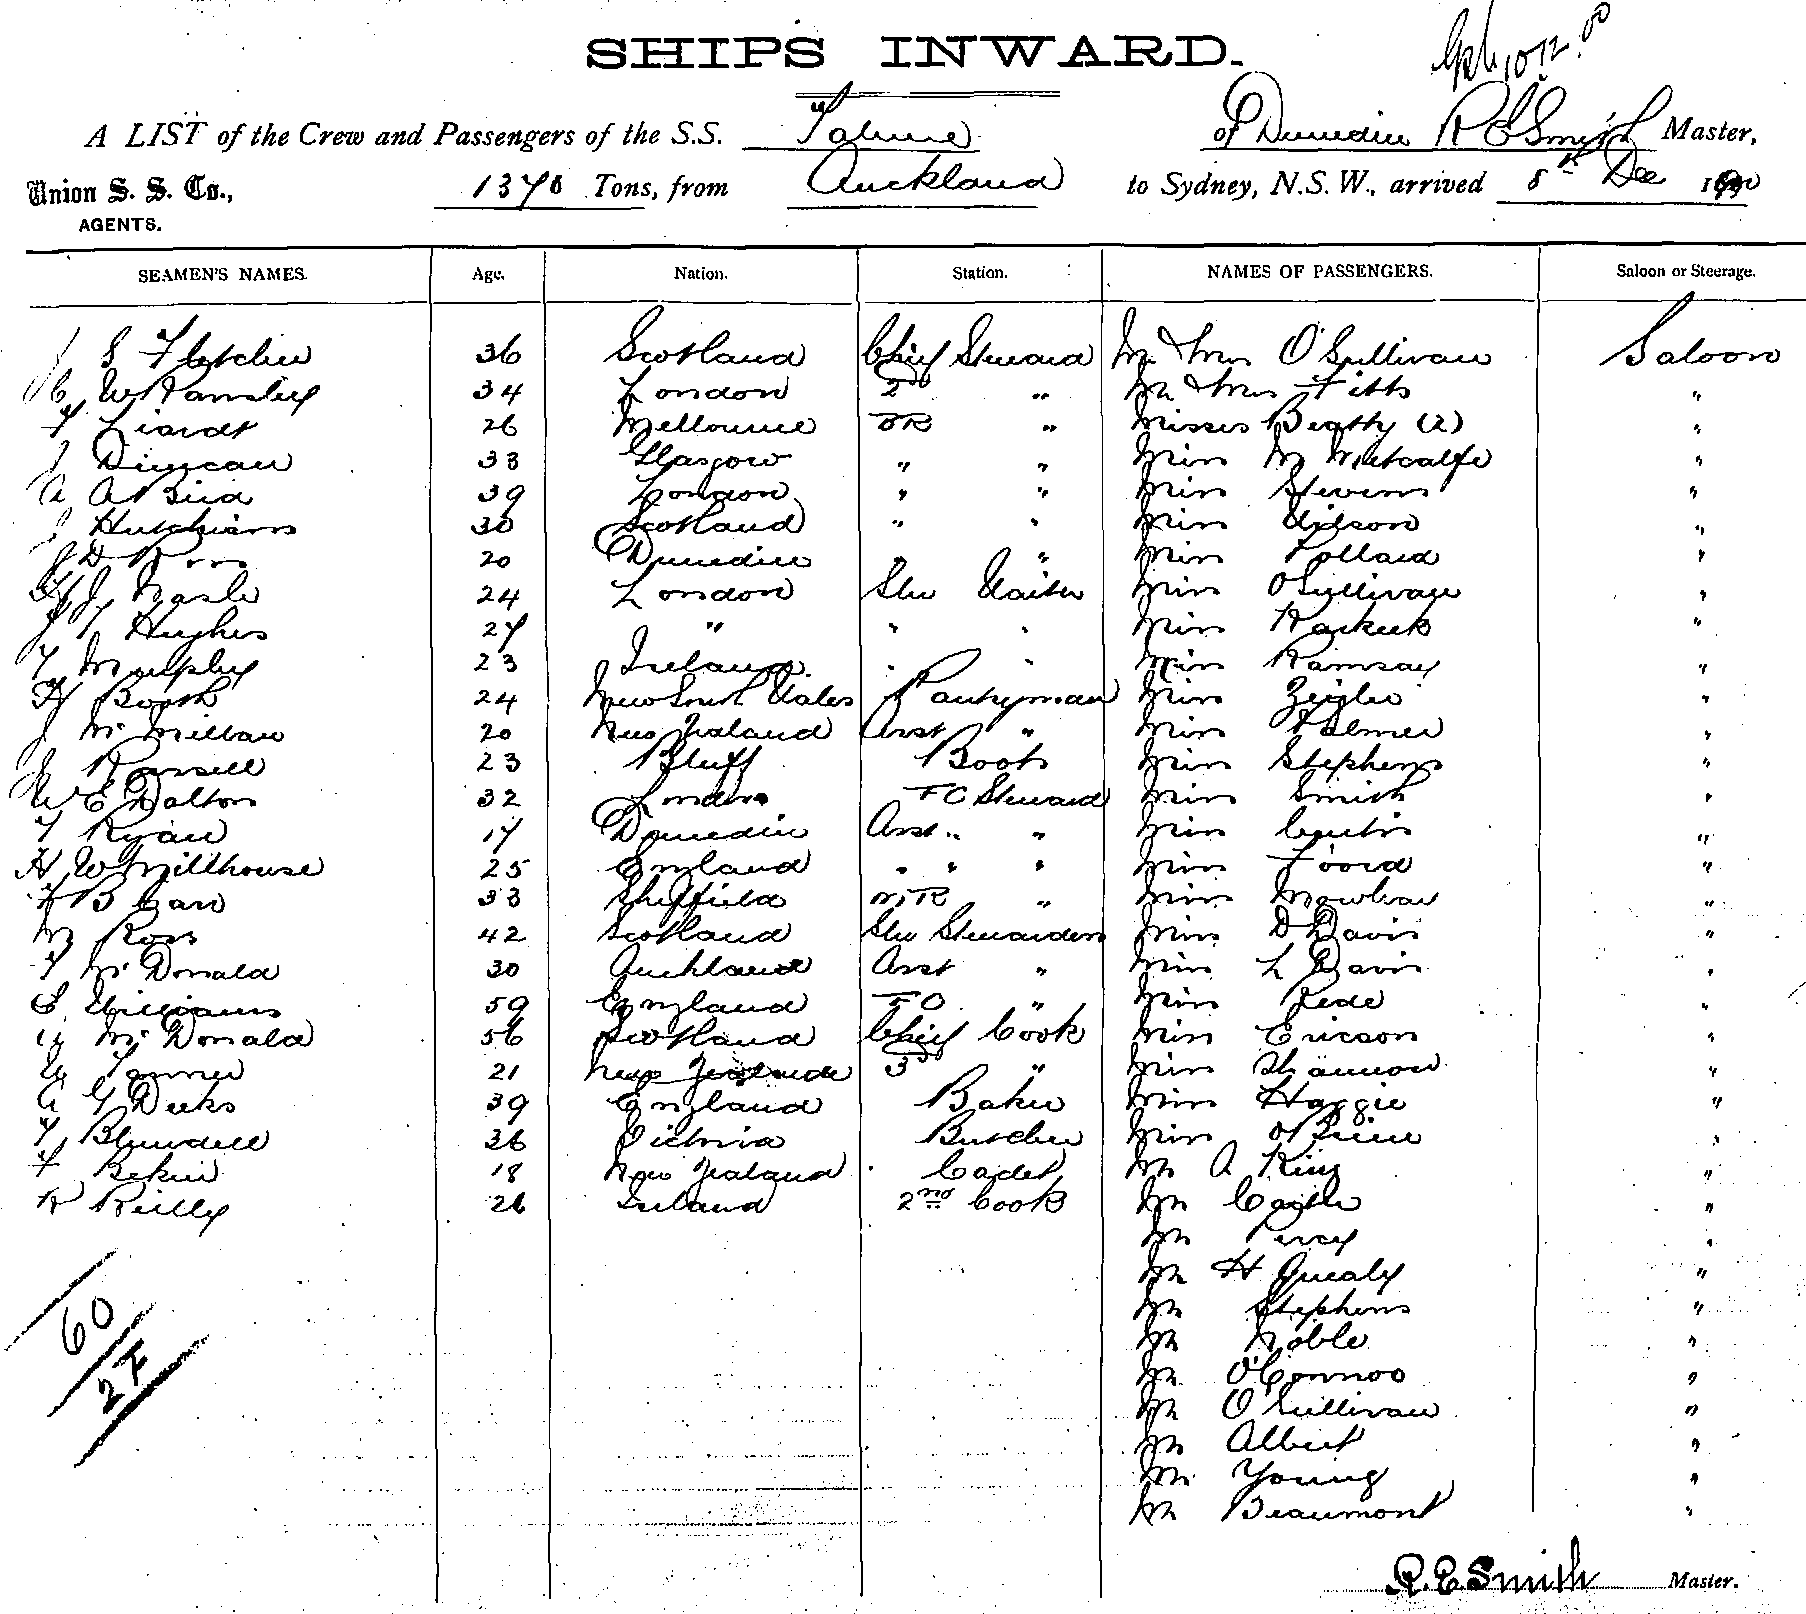 SHIPS INWARD.
A LIST of the Crew and Passengers of the S.S. of Dunedin R E Smith Master,
Union S. S. Co., 1370 Tons, from Auckland to Sydney, N.S.W., arrived 8th Dec
AGENTS.
SEAMEN'S NAMES. Age. Nation. Station. NAMES OF PASSENGERS. Saloon or Steerage.
S Fletcher 36 Scotland Chief Steward Mr & Mrs O'Sullivan Saloon
C W Ramsley 34 London 2nd " Mr & Mrs Fitts "
F Liardt 26 Melbourne BR " Misses Beatty (2) "
J Duncan 33 Glasgow " " Miss M Metcalfe "
A A Bird 39 London " " Miss Stevens "
J Hutchison 30 Scotland " " Miss Wilson "
J D Ross 20 Dunedin " " Miss Pollard "
J Nash 24 London Stw Waiter Miss O'Sullivan "
Hughes 27 " " " Miss "
T Murphy 23 Ireland " " Miss Ramsay "
H Booth 24 New South Wales Pantryman Miss Zeigler "
J McMillan 20 New Zealand Asst " Miss Palmer "
J Russell 23 Bluff Boots Miss Stephens "
W E Dalton 32 London FC Steward Miss Smith "
T Ryan 17 Dunedin Asst " " Miss Curtis "
H W Millhouse 25 England " " " Miss Foord "
F B Carr 33 Sheffield " Miss Mowbray "
M Ross 42 Scotland Stw Stewardess Miss D Davis "
F McDonald 30 Auckland Asst " Miss L Davis "
S Williams 59 England " Miss Rede "
McDonald 56 Scotland Chief Cook Miss Ericson "
Tanner 21 New Zealand 3rd " Miss Shannon "
A G Deeks 39 England Baker Miss Haggie "
F Blundell 36 Victoria Butcher Miss O'Brien "
F Bekin 18 New Zealand Cadet Mr A King "
R Reilly 26 Ireland 2nd Cook Mr Castle "
Mr Percy "
Mr H Quealy "
Mr Stephens "
60 Mr Noble "
27 Mr O'Connor "
Mr O'Sullivan "
Mr Albert "
Mr Young "
Mr Beaumont "
R. E Smith Master.